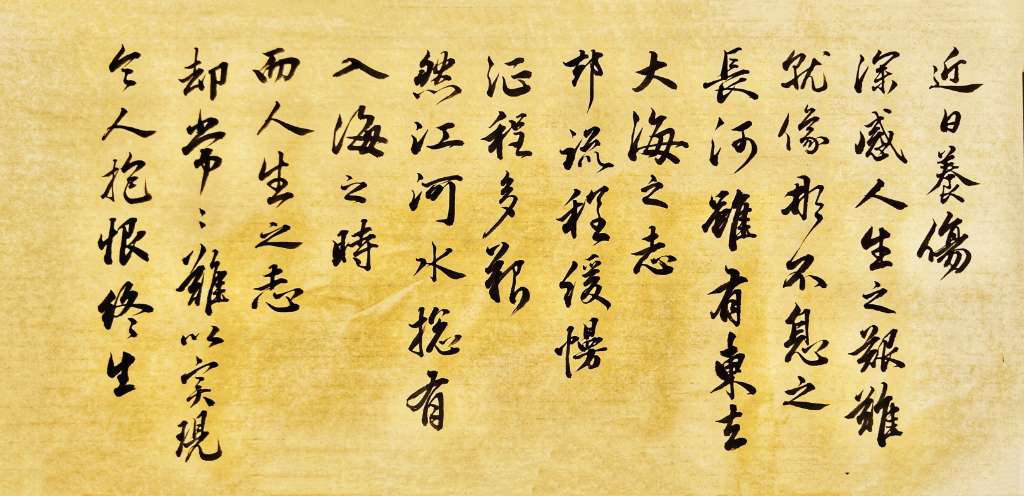 近日養傷
深感人生之艱難
就像那不息之
長河雖有東去
大海之志
却流程緩慢
征程多艱
然江河水總有
入海之時
而人生之志
却常〻難以实現
令人抱恨終生